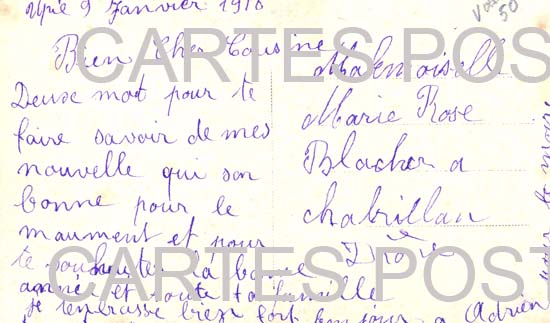 Upie 9 Janvier 1910
Bien Cher Cousine
Deux mot pour te
faire savoir de mes
nouvelle qui son
bonne pour le
maument et pour
te souhaiter la bonne
année et toute ta famille
je tembrasse bien fort bonjour a Adrien
Mademoiselle
Marie Rose
Blacher a
chabrillan
Drôme
50
CARTES POST
CARTES POST